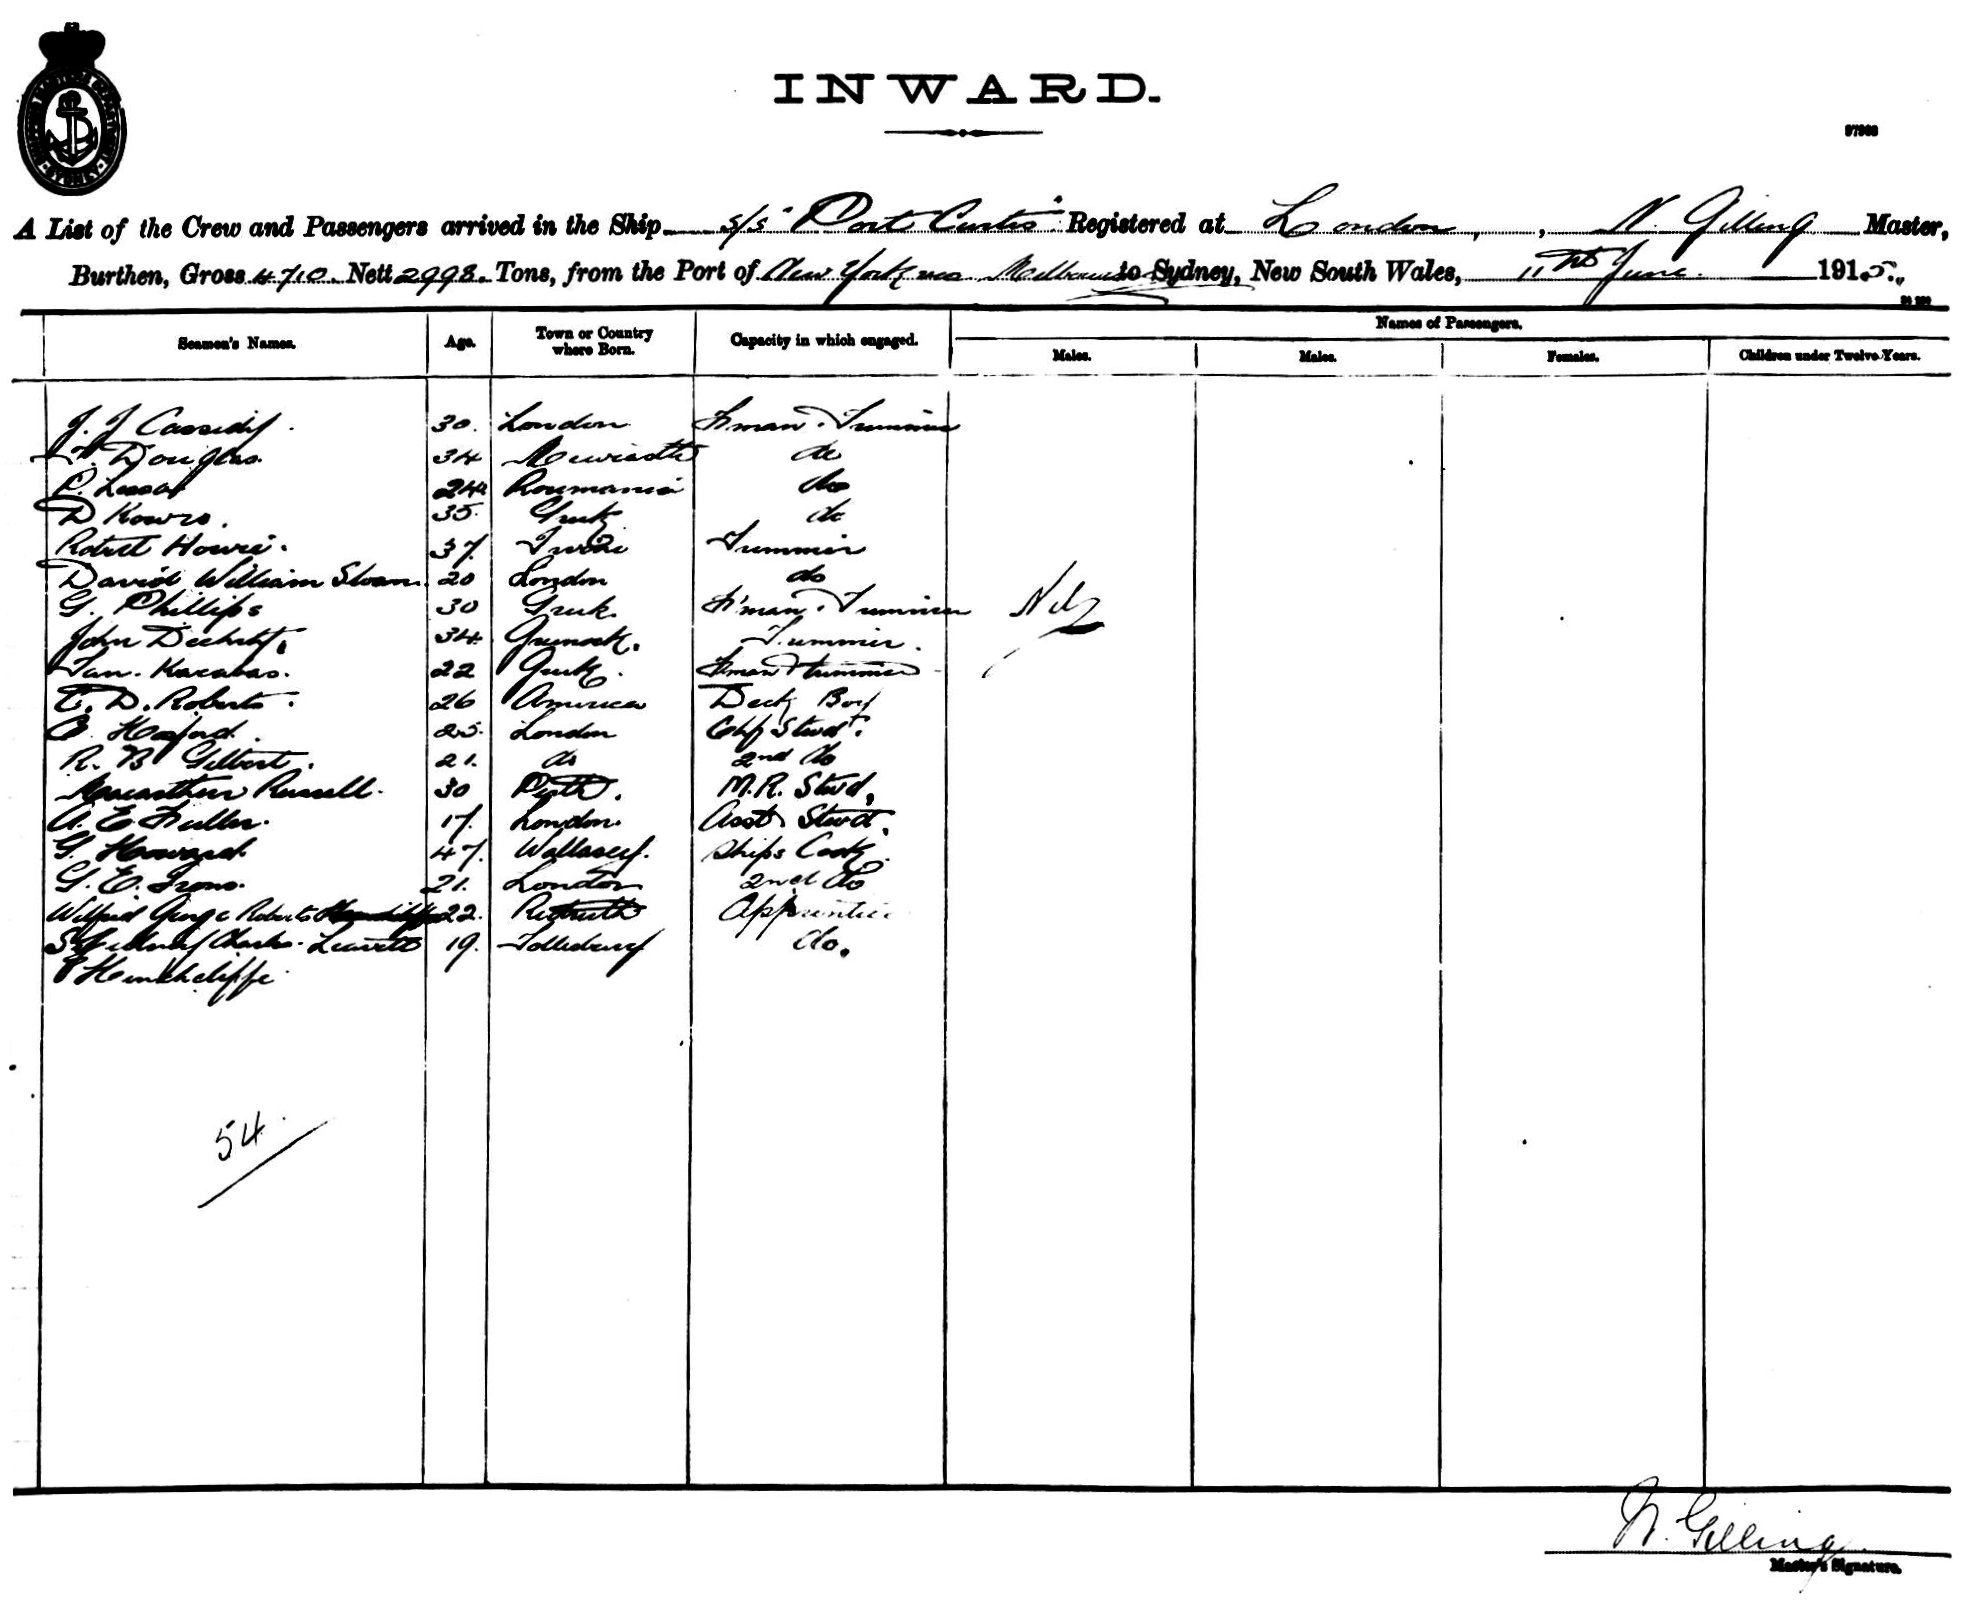 INWARD.
97963
A List of the Crew and Passengers arrived in the Ship s/s "Port Curtis" Registered at London, , N. Gilling Master,
Burthen, Gross 4710. Nett 2998. Tons, from the Port of New York via Melbourne to Sydney, New South Wales, 11th June. 1915.
Seamen's Names. Age. Town or Country where Born. Capacity in which engaged. Names of Passengers.
Males. Males. Females. Children under Twelve Years.
J. J Cassidy. 30. London F'man & Trimmer
Douglas. 34 Newcastle do
24 Roumania do
D Kowro. 35. Greek do
Robert Howie. 37. Trimmer
David William Sloan. 20 London do
G. Phillips 30 Greek F'man & Trimmer Nil
John 34. Greenock. Trimmer.
Karabas. 22 Greek. F'man & Trimmer
E. D. Roberts. 26 America Deck Boy
Hosford. 25. London Chf Stwd.
R. B Gilbert. 21. do 2nd do
Macarthur Russell. 30 Perth. M.R. Stwd,
A. E Fuller. 17. London. Asst Stwd.
G. Howard. 47. Wallasey. Ships Cook.
G. E. Irons. 21. London 2nd do
Wilfrid George Roberts Hinchcliffe 22. Redruth Apprentice
Sydney Charles Leavett 19. Tollesbury do.
Hinchcliffe.
54.
N. Gilling.
Master's Signature.